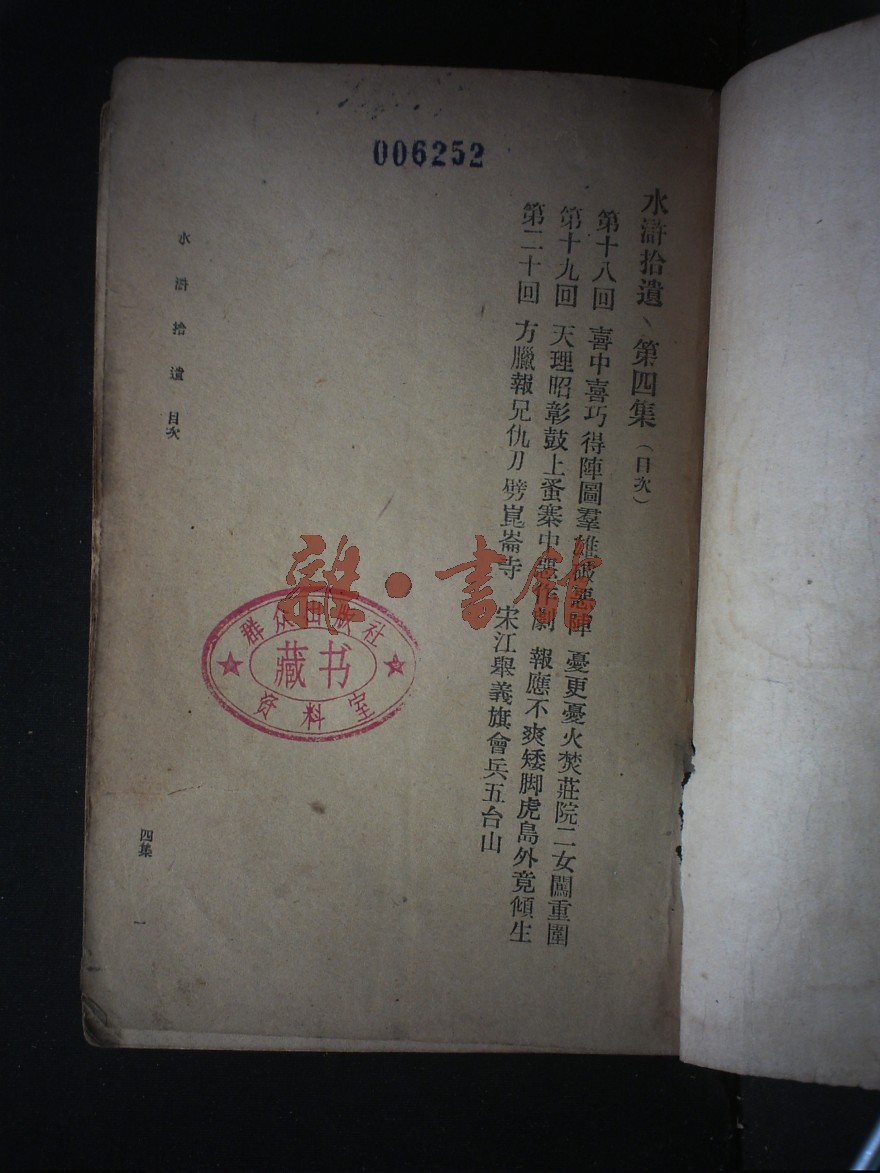 006252
水滸拾遺、第四集（目次）
第十八回　喜中喜巧得陣圖羣雄破惡陣　憂更憂火焚莊院二女闖重圍
第十九回　天理昭彰鼓上蚤寨中惡作劇　報應不爽矮脚虎島外竟傾生
第二十回　方臘報兄仇刀劈崑崙寺　宋江舉義旗會兵五台山
水滸拾遺　目次
四集　一
群众出版社
藏书
资料室
雜·書館